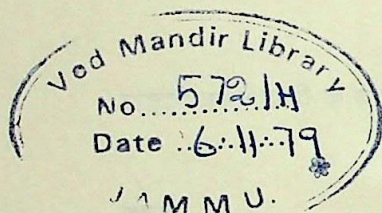 Ved Mandir Library
No......572/H
Date ..6:.11:.79
JAMMU.